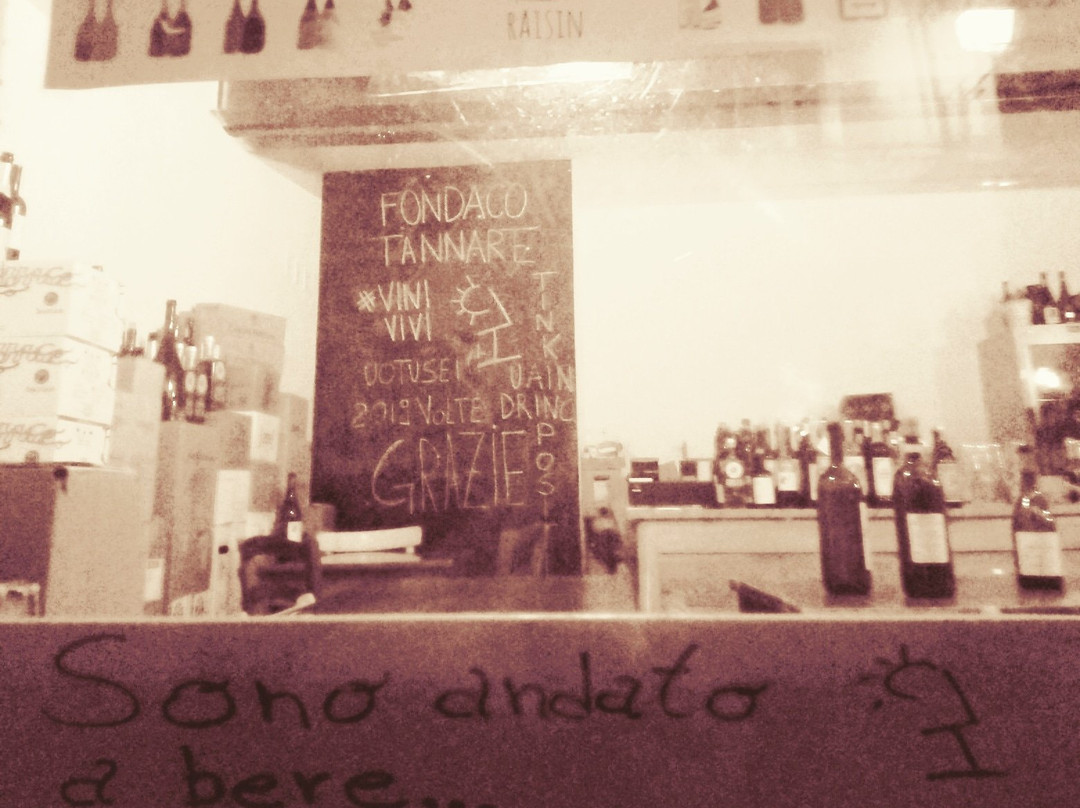 RAISIN
FONDACO
TANNARE
#VINI
VIVI
UOTUSEI UAIN
2019 VOLTE DRINC
GRAZIE
TINK
POSIT
Sono andato
a bere...